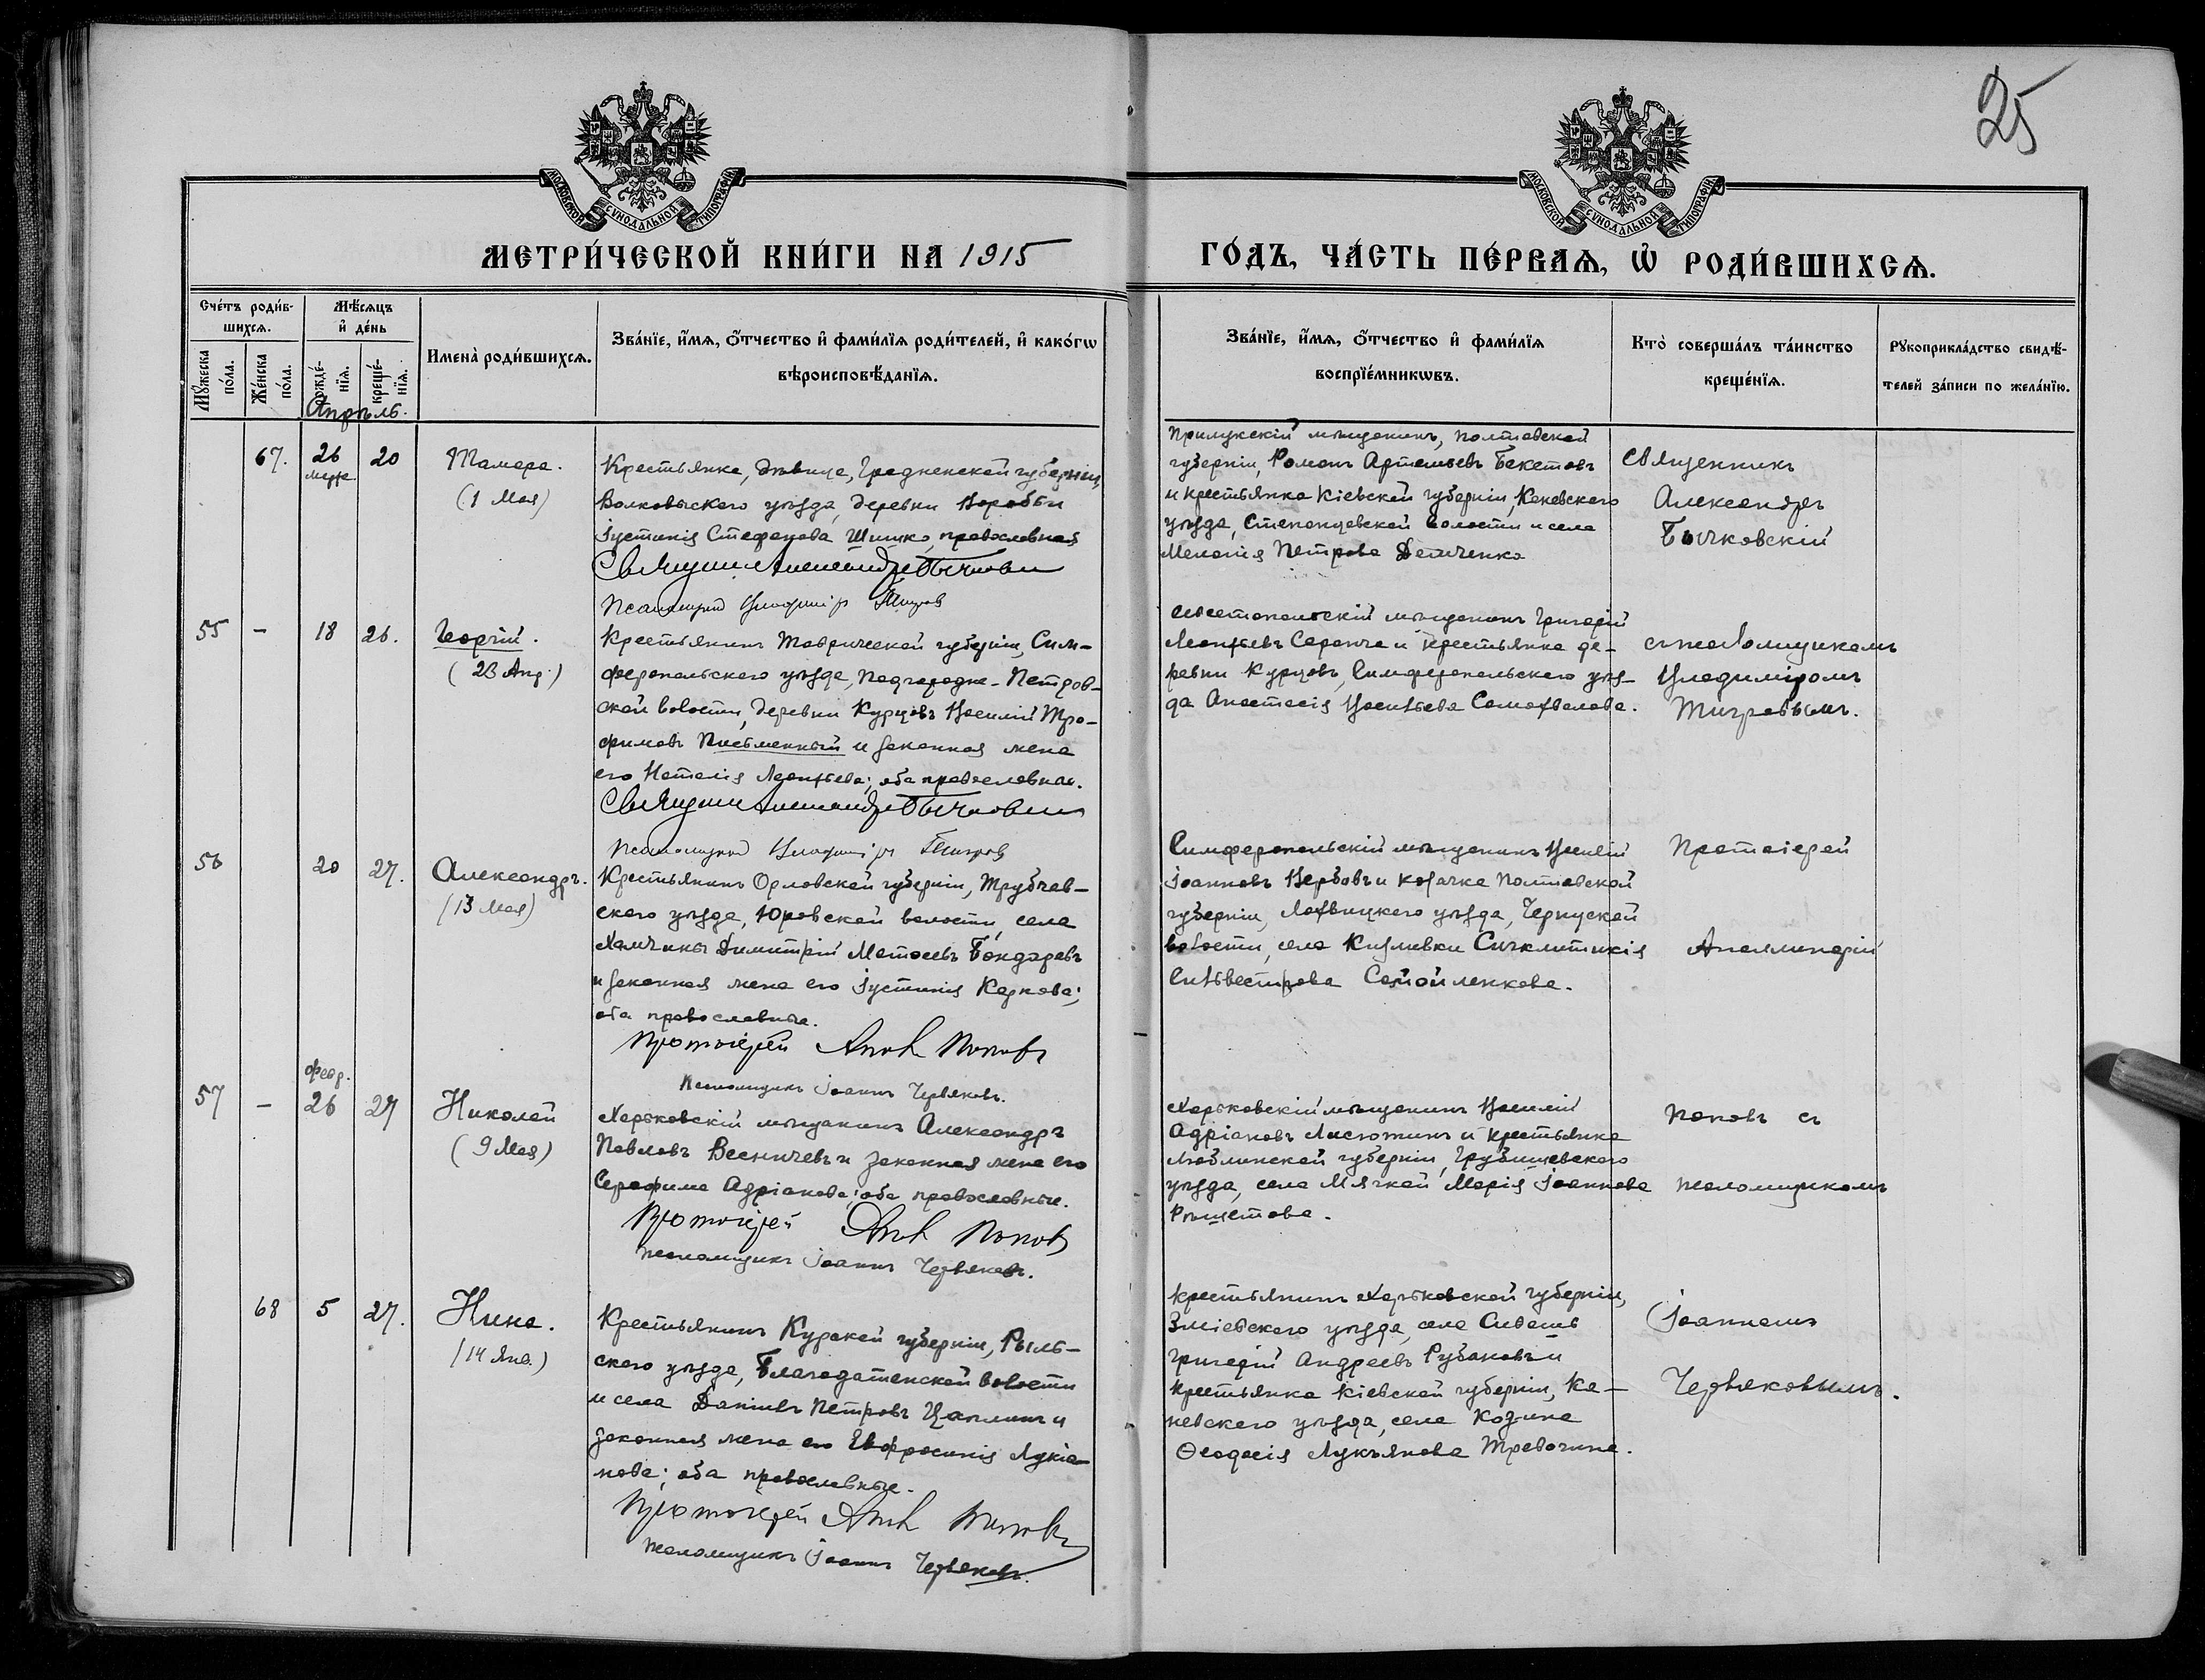 25
МОСКОВСКОЙ СѴНОДАЛЬНОЙ ТИПОГРАФІИ
МОСКОВСКОЙ СѴНОДАЛЬНОЙ ТИПОГРАФІИ
МЕТРИ́ЧЕСКОЙ КНИ́ГИ НА 1915
ГО́ДЪ, ЧА́СТЬ ПЕ́РВАѦ, Ѡ҆ РОДИ́ВШИХСѦ.
Сче́тъ роди́в-
шихсѧ.
Мꙋ́жеска по́ла.
Же́нска по́ла.
Мѣ́сѧцъ
и҆ де́нь
рожде́-
нїѧ.
креще́-
нїѧ.
Апрѣль.
Имена̀ роди́вшихсѧ.
Зва́нїе, и҆́мѧ, ѻ҆́тчество и҆ фами́лїѧ роди́телей, и҆ како́гѡ
вѣроисповѣ́данїѧ.
Зва́нїе, и҆́мѧ, ѻ҆́тчество и҆ фами́лїѧ
воспрїе́мникѡвъ.
Кто̀ соверша́лъ та́инство
креще́нїѧ.
Рꙋкоприкла́дство свидѣ́-
телей за́писи по жела́нїю.
67.
26
20
Тамара.
(1 Мая)
Крестьянка, дѣвица, Гродненской губерніи,
Волковыскаго уѣзда, деревни Воробьи
Іустинія Стефанова Шишко, православная
Священникъ Александръ Бычковскій
Псаломщикъ Владиміръ Тигровъ
Прилукскій мѣщанинъ, Полтавской
губерніи, Романъ Артемьевъ Бекетовъ
и крестьянка Кіевской губерніи, Каневскаго
уѣзда, Степанцевской волости и села
Меланія Петрова Демченко
Священникъ
Александръ
Бычковскій
55
-
18
26.
Георгій.
(23 Апр.)
Крестьянинъ Таврической губерніи, Сим-
феропольскаго уѣзда, Подгородне-Петров-
ской волости, деревни Курцовъ Василій Тро-
фимовъ Письменный и законная жена
его Наталія Леонтьева; оба православные.
Священникъ Александръ Бычковскій
Псаломщикъ Владиміръ Тигровъ
Севастопольскій мѣщанинъ Григорій
Леонтьевъ Саранча и крестьянка де-
ревни Курцовъ, Симферопольскаго уѣз-
да Анастасія Васильева Самохвалова.
съ псаломщикомъ
Владиміромъ
Тигровымъ.
56
20
27.
Александръ.
(13 Мая)
Крестьянинъ Орловской губерніи, Трубчев-
скаго уѣзда, Юровской волости, села
Хамчины Димитрій Матѳеевъ Бондаревъ
и законная жена его Іустинія Карпова;
оба православные.
Протоіерей Апол Поповъ
Псаломщикъ Іоаннъ Червяковъ.
Симферопольскій мѣщанинъ Василій
Іоанновъ Вербовъ и козачка Полтавской
губерніи, Лохвицкаго уѣзда, Чернуской
волости, села Кизливки Синклитикія
Сильвестрова Самойленкова.
Протоіерей
Аполлинарій
57
-
февр.
26
27
Николай
(9 Мая)
Харьковскій мѣщанинъ Александръ
Павловъ Весничевъ и законная жена его
Серафима Адріанова; оба православные.
Протоіерей Апол Поповъ
Псаломщикъ Іоаннъ Червяковъ.
Харьковскій мѣщанинъ Василій
Адріановъ Лисютинъ и крестьянка
Люблинской губерніи, Грубешевскаго
уѣзда, села Мягкой Марія Іоаннова
Рѣшетова.
Поповъ съ
псаломщикомъ
68
5
27.
Нина.
(14 Янв.)
Крестьянинъ Курской губерніи, Рыль-
скаго уѣзда, Благодатенской волости
и села Даніилъ Петровъ Цаплинъ и
законная жена его Евфросинія Лукіа-
нова; оба православные.
Протоіерей Апол Поповъ
Псаломщикъ Іоаннъ Червяковъ.
Крестьянинъ Харьковской губерніи,
Зміевскаго уѣзда, села Сивашъ
Григорій Андреевъ Рубановъ и
крестьянка Кіевской губерніи, Ка-
невскаго уѣзда, села Козина
Ѳеодосія Лукьянова Тревогина.
Іоанномъ
Червяковымъ.